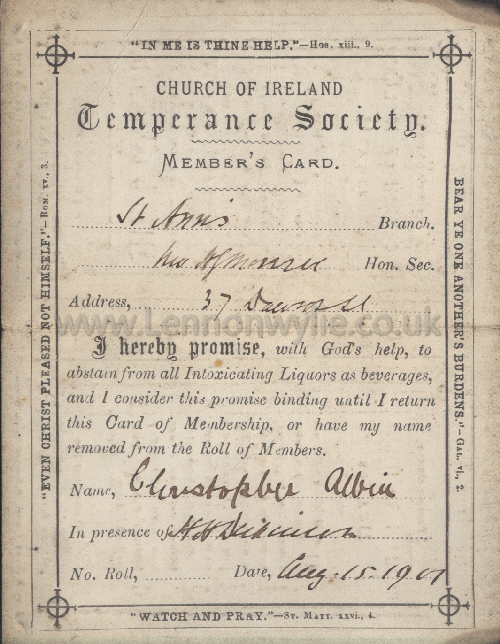 "IN ME IS THINE HELP."—Hos. xiii., 9.
CHURCH OF IRELAND
Temperance Society.
MEMBER'S CARD.
St Ann's Branch.
Hon. Sec.
Address, 37 Dawson St
www.Lennonwylie.co.uk
I hereby promise, with God's help, to
abstain from all Intoxicating Liquors as beverages,
and I consider this promise binding until I return
this Card of Membership, or have my name
removed from the Roll of Members.
Name, Christopher Albin
In presence of H H Dickinson
No. Roll, Date, Aug. 15. 1901
"WATCH AND PRAY."—St. Matt. xxvi., 4.
"EVEN CHRIST PLEASED NOT HIMSELF."—Rom. xv., 3.
BEAR YE ONE ANOTHER'S BURDENS."—Gal. vi., 2.